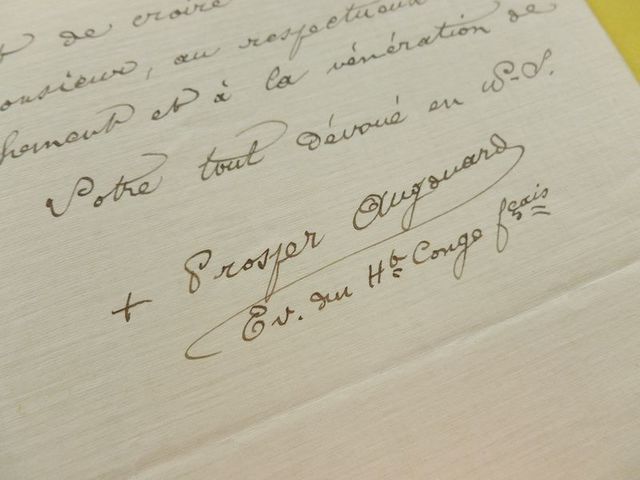 t de croire
onsieur, au respectueux
chement et à la vénération de
Votre tout dévoué en N.-S.
+ Prosper Augouard
Ev. du Ht Congo fçais